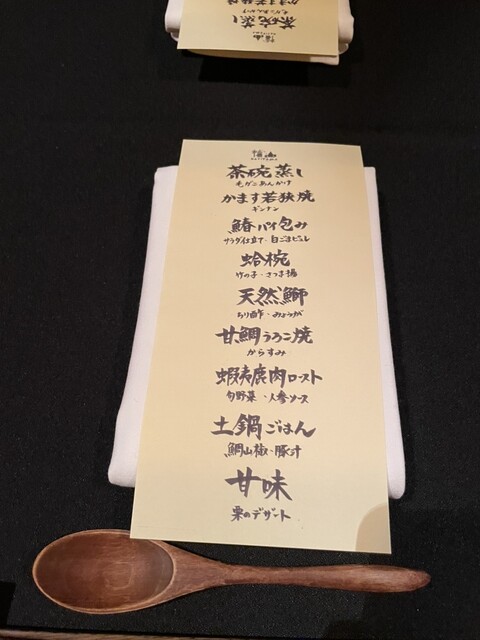 茶碗蒸し
毛ガニあんかけ
かます若狭焼
ギンナン
鰆パイ包み
サラダ仕立て・白ごまピュレ
蛤椀
竹の子・さつま揚
天然鰤
ちり酢・みょうが
甘鯛うろこ焼
からすみ
蝦夷鹿肉ロースト
旬野菜・人参ソース
土鍋ごはん
鯛山椒・豚汁
甘味
栗のデザート